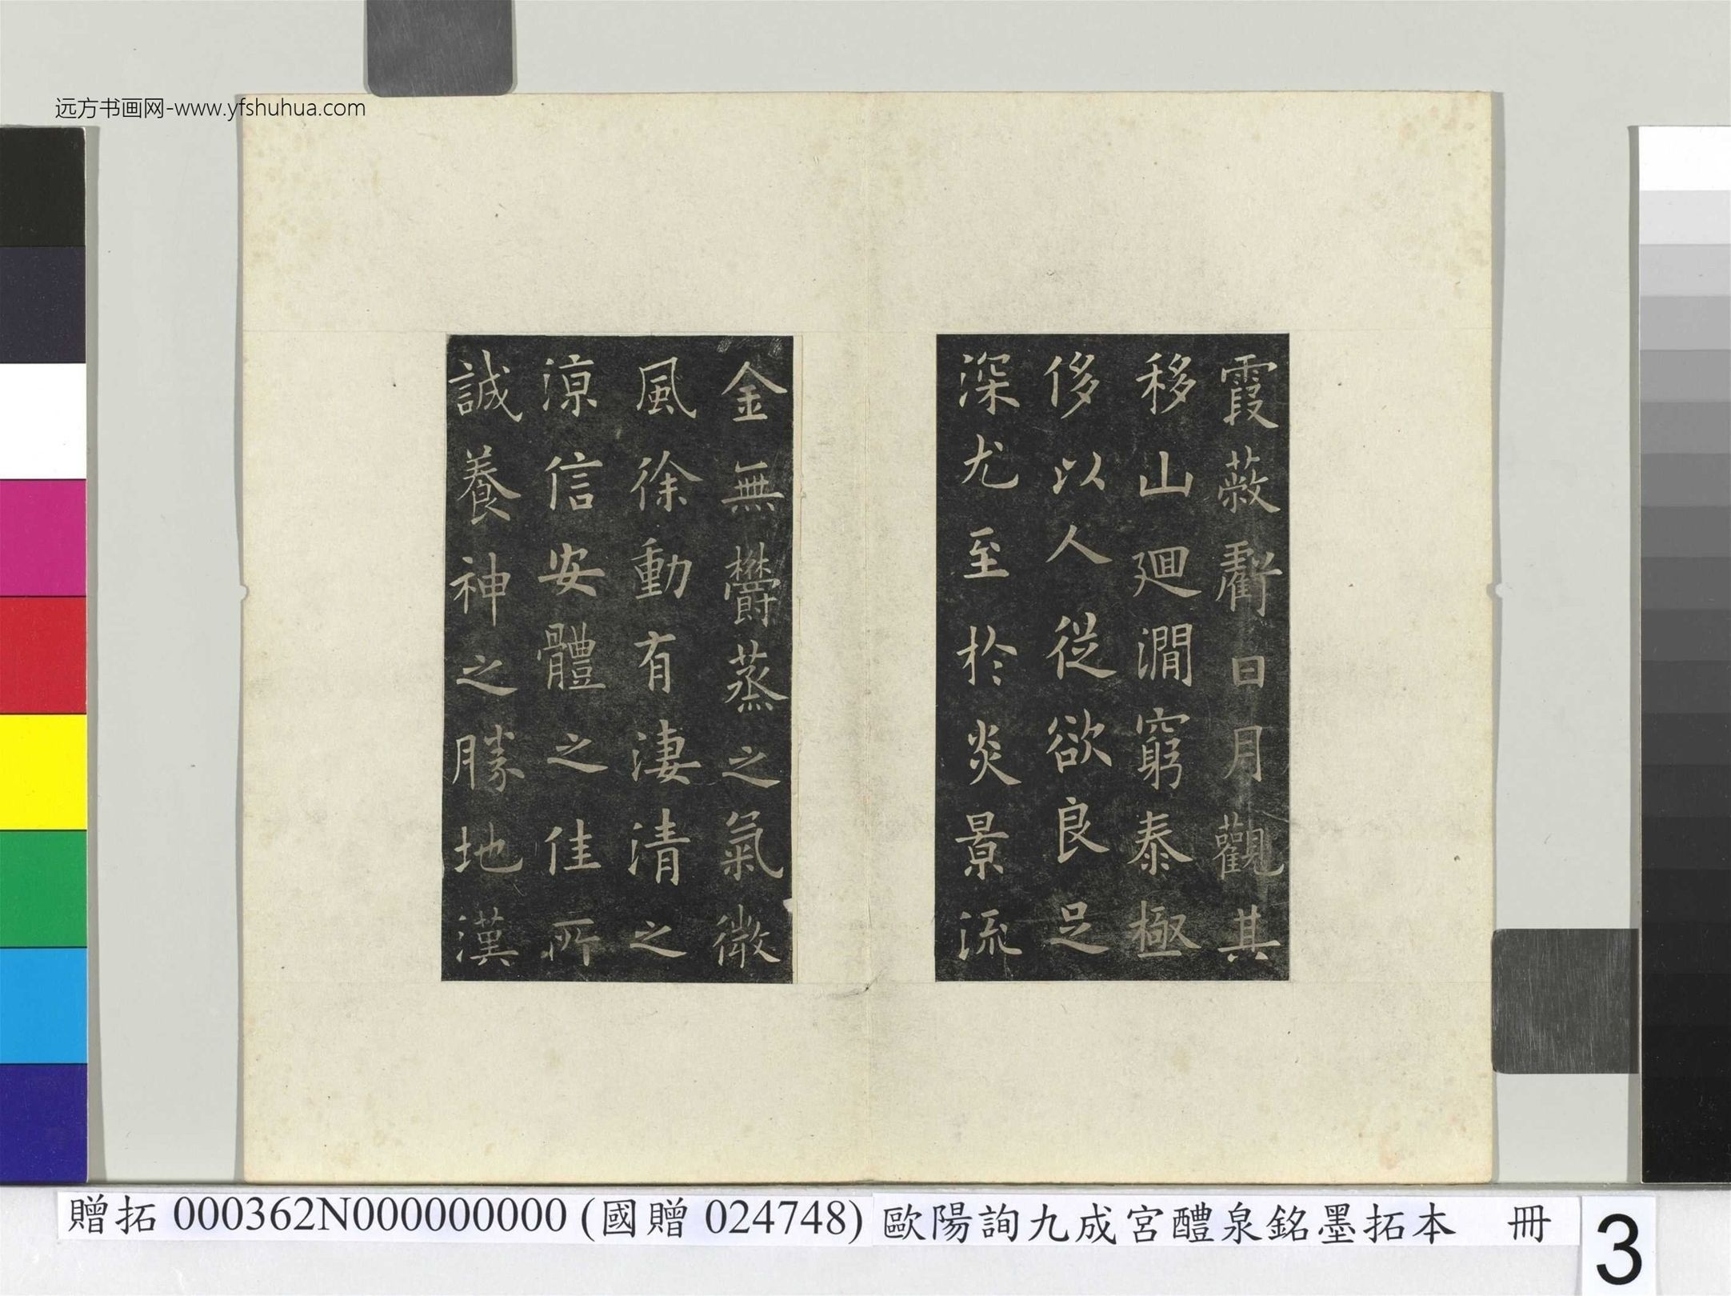 远方书画网-www.yfshuhua.com
霞蔽虧日月觀其
移山廻澗窮泰極
侈以人従欲良足
深尤至於炎景流
金無欝蒸之氣微
風徐動有淒清之
涼信安體之佳所
誠養神之勝地漢
贈拓 000362N000000000 (國贈 024748) 歐陽詢九成宮醴泉銘墨拓本 冊
3